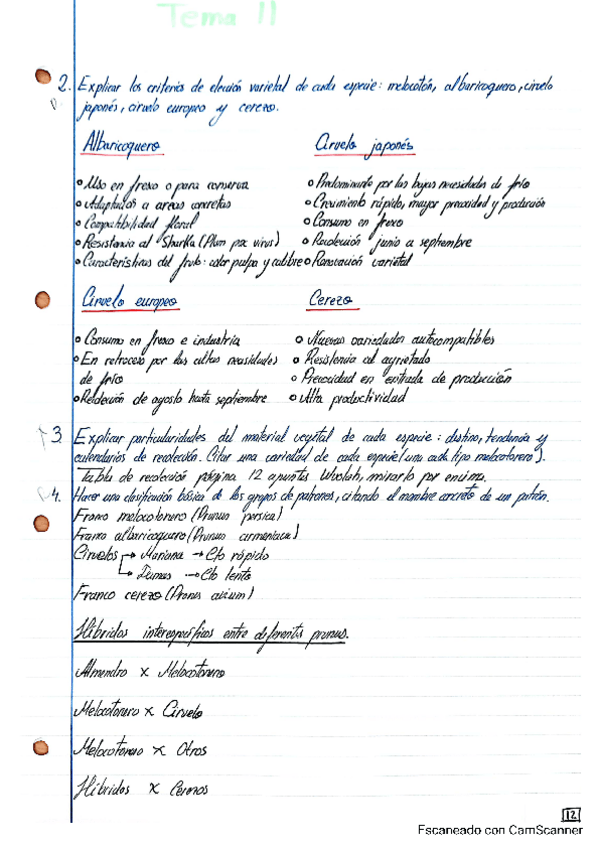 Tema 11
2. Explicar los criterios de elección varietal de cada especie: melocotón, albaricoquero, ciruelo
japonés, ciruelo europeo y cerezo.
Albaricoquero
• Uso en fresco o para conserva
• Adaptados a areas concretas
• Compatibilidad floral
• Resistencia al Sharka (Plum pox virus)
• Características del fruto: color pulpa y calibre
Ciruelo japonés
• Predominante por las bajas necesidades de frío
• Crecimiento rápido, mayor precocidad y producción
• Consumo en fresco
• Recolección junio a septiembre
• Renovación varietal
Ciruelo europeo
• Consumo en fresco e industria
• En retroceso por las altas necesidades
de frío
• Recolección de agosto hasta septiembre
Cerezo
• Nuevas variedades autocompatibles
• Resistencia al agrietado
• Precocidad en entrada de producción
• Alta productividad
3. Explicar particularidades del material vegetal de cada especie: destino, tendencia y
calendarios de recolección. Citar una variedad de cada especie (una cada tipo melocotonero).
Tabla de recolección página 12 apuntes Wuolah, mirarlo por encima.
4. Hacer una clasificación básica de los grupos de patrones, citando el nombre concreto de un patrón.
Franco melocotonero (Prunus persica)
Franco albaricoquero (Prunus armeniaca)
Ciruelos → Mariana → Cto rápido
→ → Cto lento
Franco cerezo (Prunus avium)
Híbridos interespecíficos entre diferentes prunus.
Almendro x Melocotonero
Melocotonero x Ciruelo
Melocotonero x Otros
Híbridos x Cerezos
12
Escaneado con CamScanner